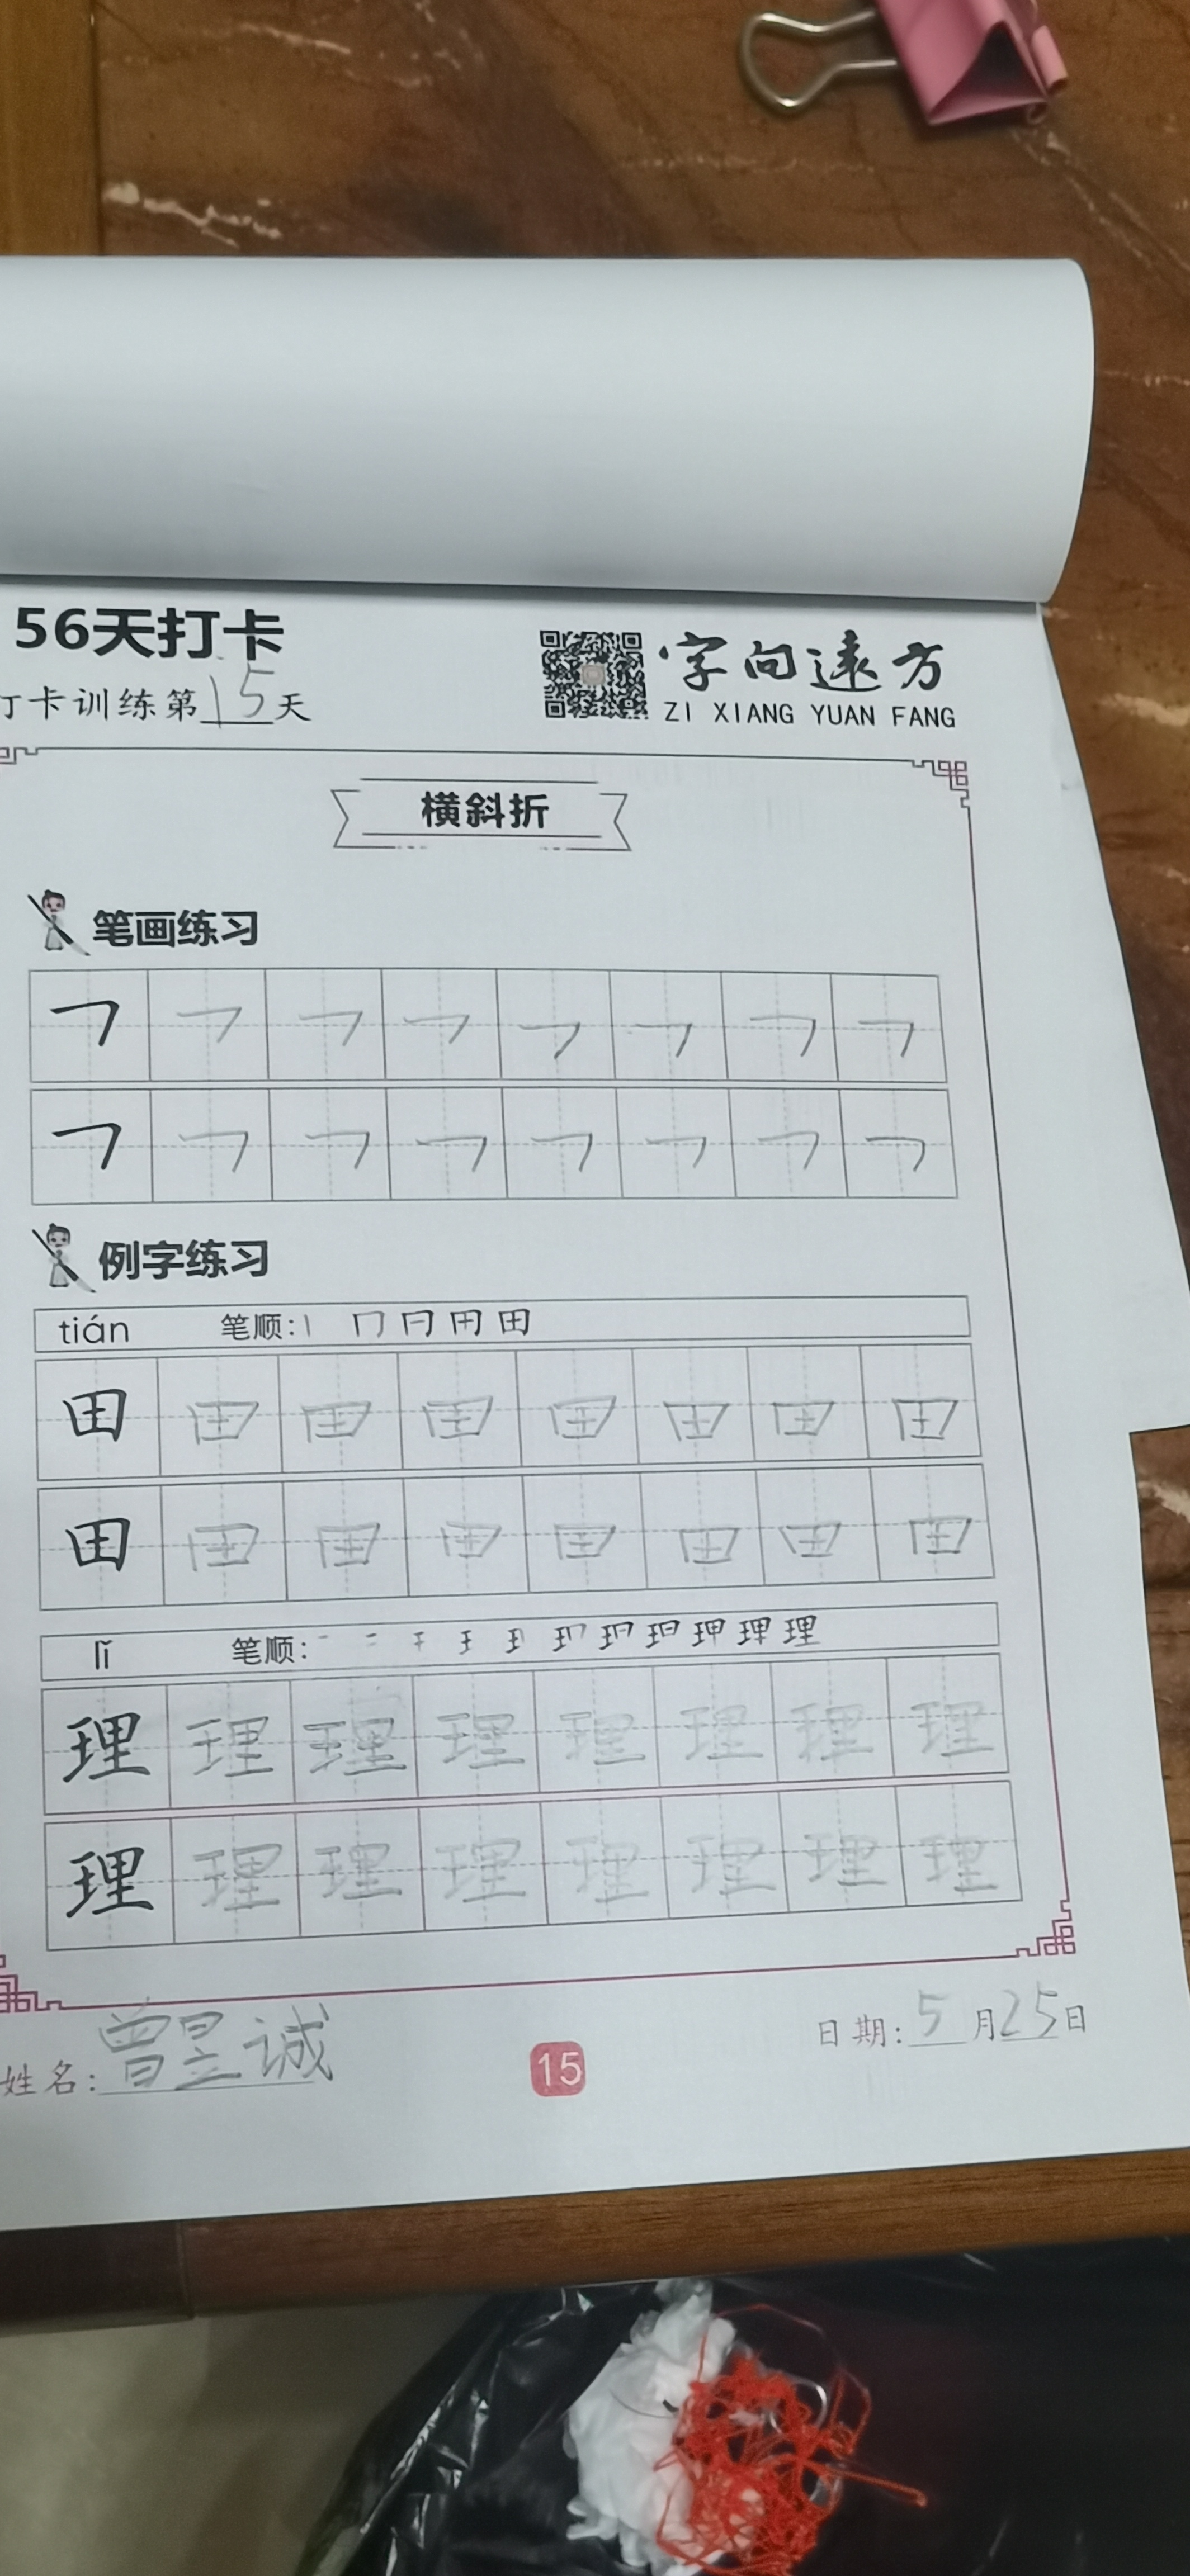 56天打卡
字向远方
打卡训练第15天
ZI XIANG YUAN FANG
横斜折
笔画练习
例字练习
tián 笔顺:丨 冂 冃 用 田
田 田 田 田 田 田 田 田
田 田 田 田 田 田 田 田
lǐ 笔顺:
理 理 理 理 理 理 理 理
理 理 理 理 理 理 理 理
姓名:曾昱诚
15
日期:5月25日